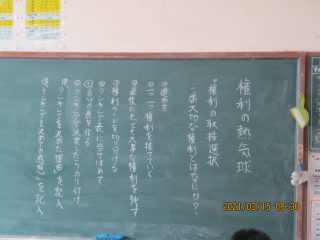 権利の熱気球
・権利の取捨選択
一番大切な権利とはなにか?
◎進め方
①一つ一つ権利を捨てていく
②最後にもっとも大事な権利を残す
③権利カードを切り分ける
④ランキング表に当てはめて
⑤自分の表を作る
⑥ランキングが決定したらのり付け
⑦「ランキングを決めた理由」を記入
⑧「ランキングを決めての感想」を記入
2021/03/15 08:30